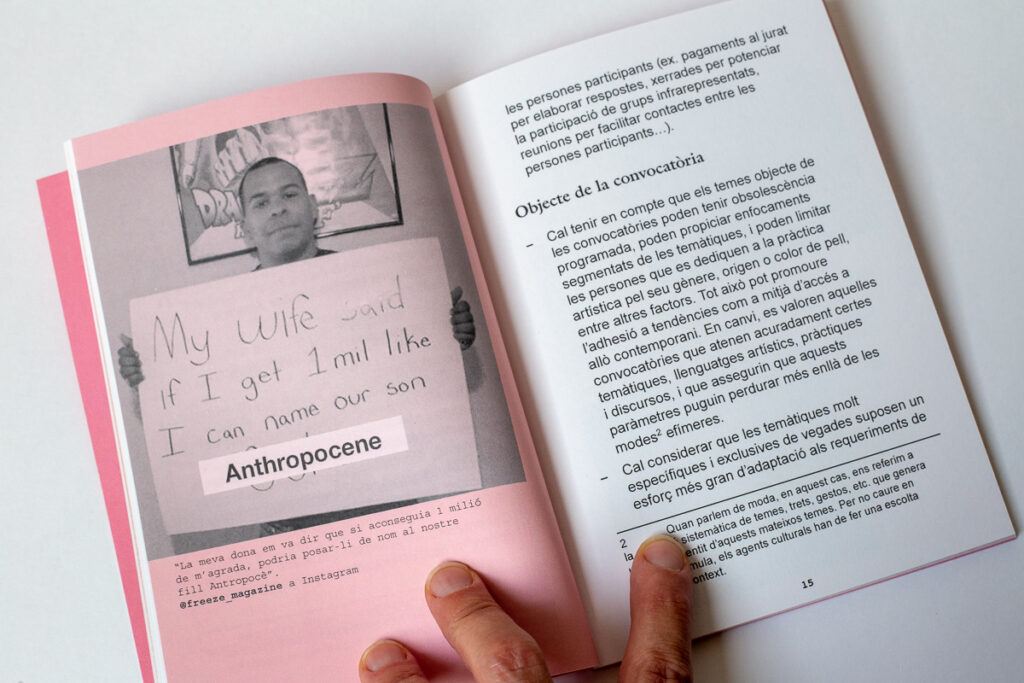 DRA
My wife said
if I get 1 mil like
I can name our son
Anthropocene
"La meva dona em va dir que si aconseguia 1 milió
de m'agrada, podria posar-li de nom al nostre
fill Antropocè".
@freeze_magazine a Instagram
les persones participants (ex. pagaments al jurat
per elaborar respostes, xerrades per potenciar
la participació de grups infrarepresentats,
reunions per facilitar contactes entre les
persones participants…).
Objecte de la convocatòria
– Cal tenir en compte que els temes objecte de
les convocatòries poden tenir obsolescència
programada, poden propiciar enfocaments
segmentats de les temàtiques, i poden limitar
les persones que es dediquen a la pràctica
artística pel seu gènere, origen o color de pell,
entre altres factors. Tot això pot promoure
l'adhesió a tendències com a mitjà d'accés a
allò contemporani. En canvi, es valoren aquelles
convocatòries que atenen acuradament certes
temàtiques, llenguatges artístics, pràctiques
i discursos, i que assegurin que aquests
paràmetres puguin perdurar més enllà de les
modes² efímeres.
– Cal considerar que les temàtiques molt
específiques i exclusives de vegades suposen un
esforç més gran d'adaptació als requeriments de
2 Quan parlem de moda, en aquest cas, ens referim a
la sistemàtica de temes, trets, gestos, etc. que genera
d'aquests mateixos temes. Per no caure en
els agents culturals han de fer una escolta
15